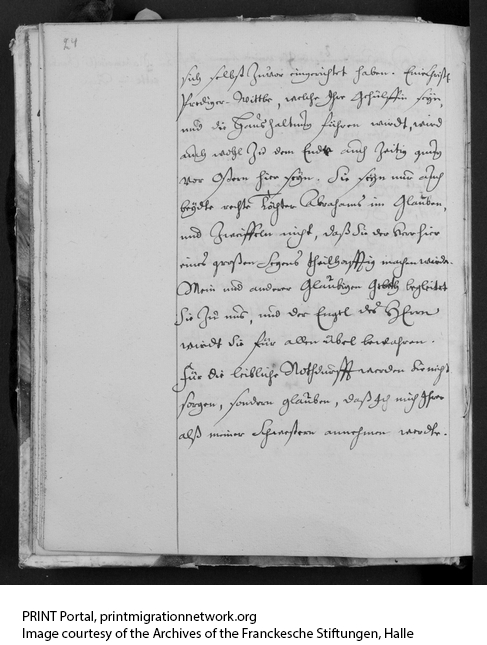 24
sich selbst zuvor eingerichtet haben. Eine christl.
Prediger-Wittbe, welche Ihre Gehülffin seyn,
und die Haushaltung führen wird, wird
auch wohl zu dem Ende auch zeitig gnug
vor Ostern hier seyn. Sie seyn nun auch
beyde rechte Töchter Abrahams im Glauben,
und zweiffeln nicht, daß Sie der Herr hier
eines großen Segens theilhafftig machen werde.
Mein und anderer Gläubigen Gebeth begleitet
Sie zu uns, und der Engel des HErrn
wird Sie für allen übel bewahren.
Für die leibliche Nothdurfft werden Sie nicht
sorgen, sondern glauben, daß Ich mich Ihrer
alß meiner Schwestern annehmen werde.
PRINT Portal, printmigrationnetwork.org
Image courtesy of the Archives of the Franckesche Stiftungen, Halle